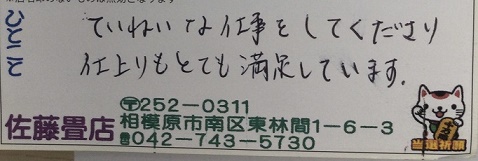 ひとこと
ていねいな仕事をしてくださり
仕上りもとても満足しています.
佐藤畳店
〒252-0311
相模原市南区東林間1-6-3
☎042-743-5730
当選祈願